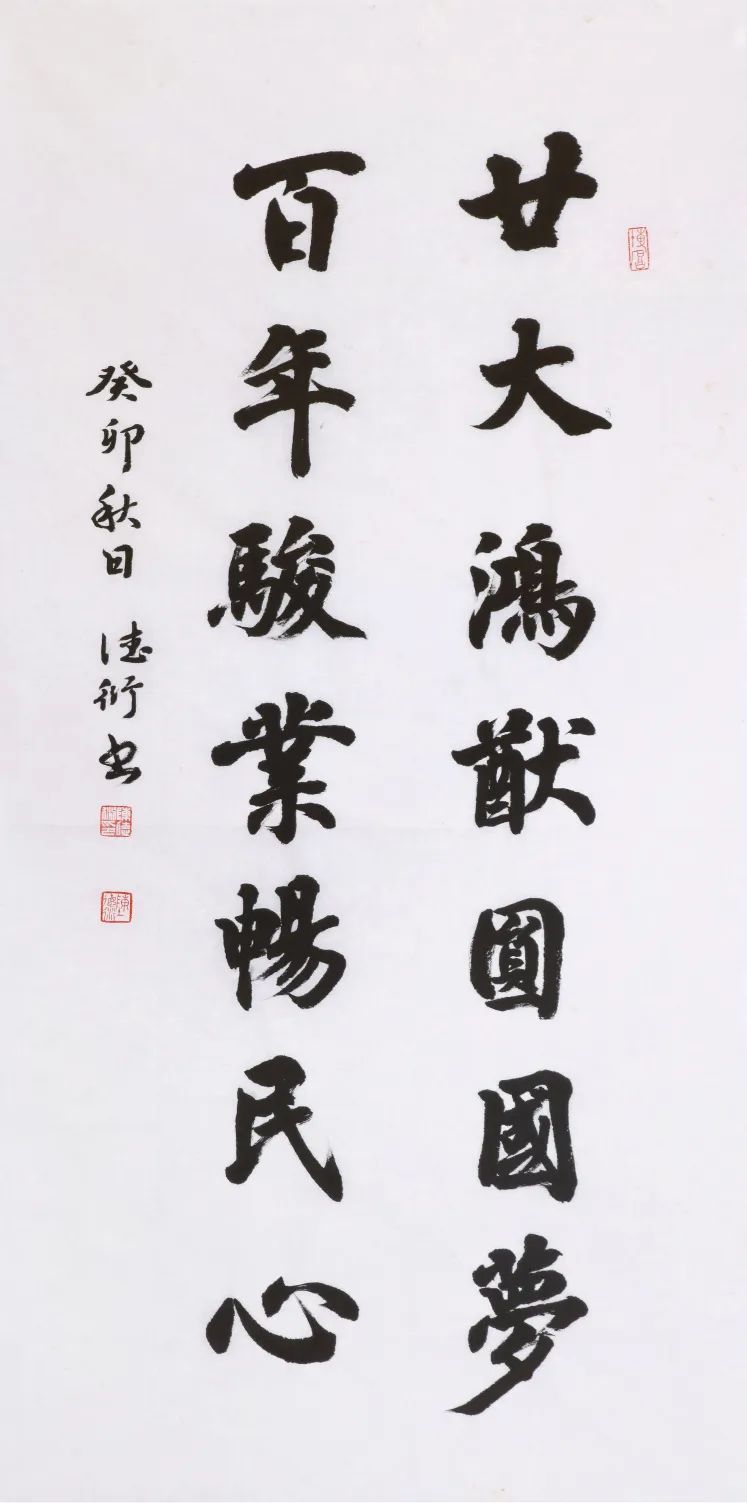 廿大鴻猷圓國夢
百年駿業暢民心
癸卯秋日 德衍书